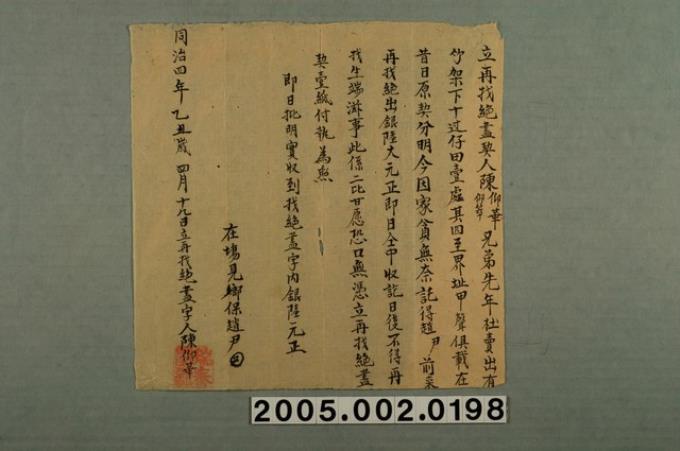 立再找絕盡契人陳仰華仰等兄弟先年社賣出有
竹架下十过仔田壹處其四至界址甲聲俱載在
昔日原契分明今因家貧無奈託得趙尹前來
再找絕出銀陸大元正即日仝中收訖日後不得再
找生端滋事此係二比甘愿恐口無憑立再找絕盡
契壹紙付執為照
即日批明實收到找絕盡字內銀陸元正
在塲見鄉保趙尹
同治四年乙丑歲四月十九日立再找絕盡字人陳仰華
2005.002.0198